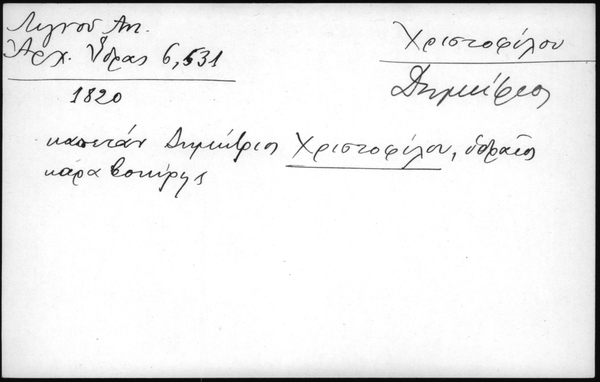 Λιγνού Αν.
Αρχ. Ύδρας 6,531
1820
Χριστοφίλου
Δημήτριος
καπετάν Δημήτριος Χριστοφίλου, υδραίος
καραβοκύρης